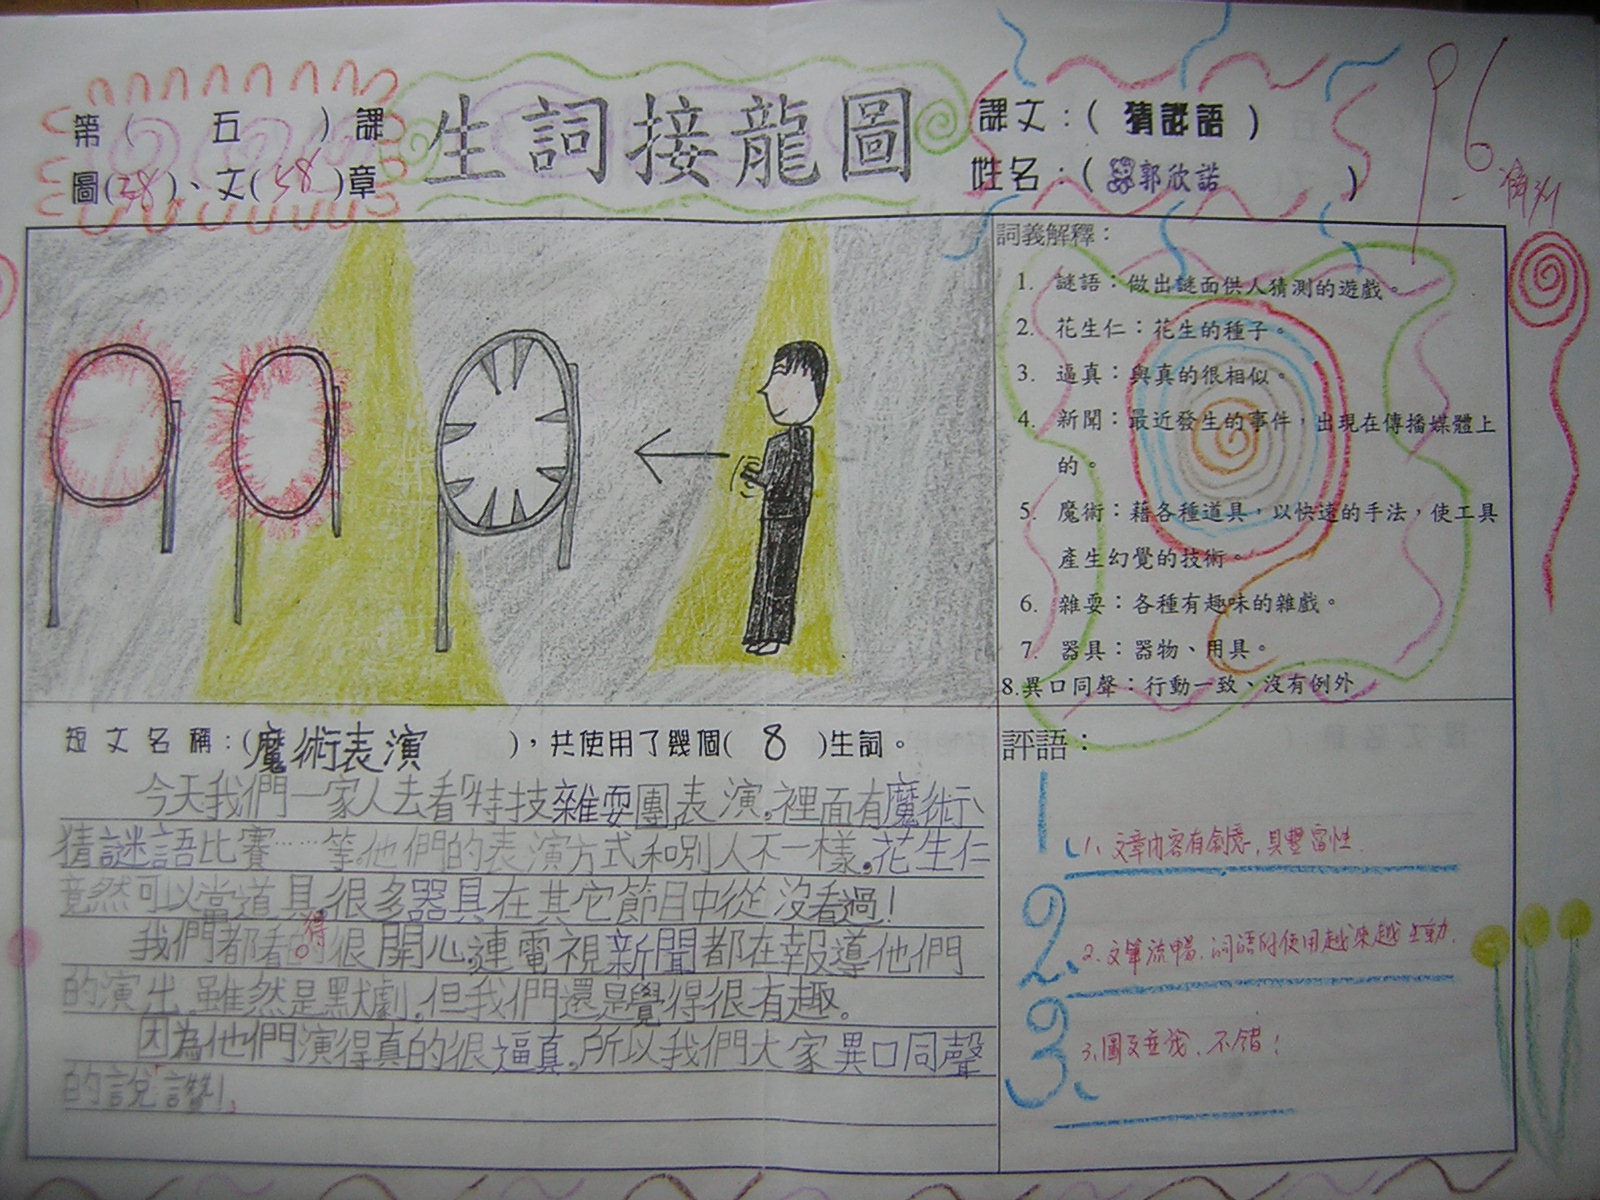 第( 五 )課
圖(38)、文(58)章
生詞接龍圖
課文:( 猜謎語 )
姓名:( 郭欣諾 )
96
詞義解釋:
1. 謎語:做出謎面供人猜測的遊戲。
2. 花生仁:花生的種子。
3. 逼真:與真的很相似。
4. 新聞:最近發生的事件,出現在傳播媒體上
的。
5. 魔術:藉各種道具,以快速的手法,使工具
產生幻覺的技術。
6. 雜耍:各種有趣味的雜戲。
7. 器具:器物、用具。
8.異口同聲:行動一致、沒有例外
短文名稱:(魔術表演 ),共使用了幾個( 8 )生詞。
今天我們一家人去看「特技雜耍團」表演。裡面有魔術、
猜謎語比賽……等。他們的表演方式和別人不一樣。花生仁
竟然可以當道具,很多器具在其它節目中從沒看過!
我們都看的得很開心,連電視新聞都在報導他們
的演出。雖然是默劇,但我們還是覺得很有趣。
因為他們演得真的很逼真。所以我們大家異口同聲
的說:讚!
評語:
1、
1、文章內容有創意,具豐富性.
2、
2、文筆流暢.詞語的使用越來越生動.
3、
3、圖文並茂、不錯!